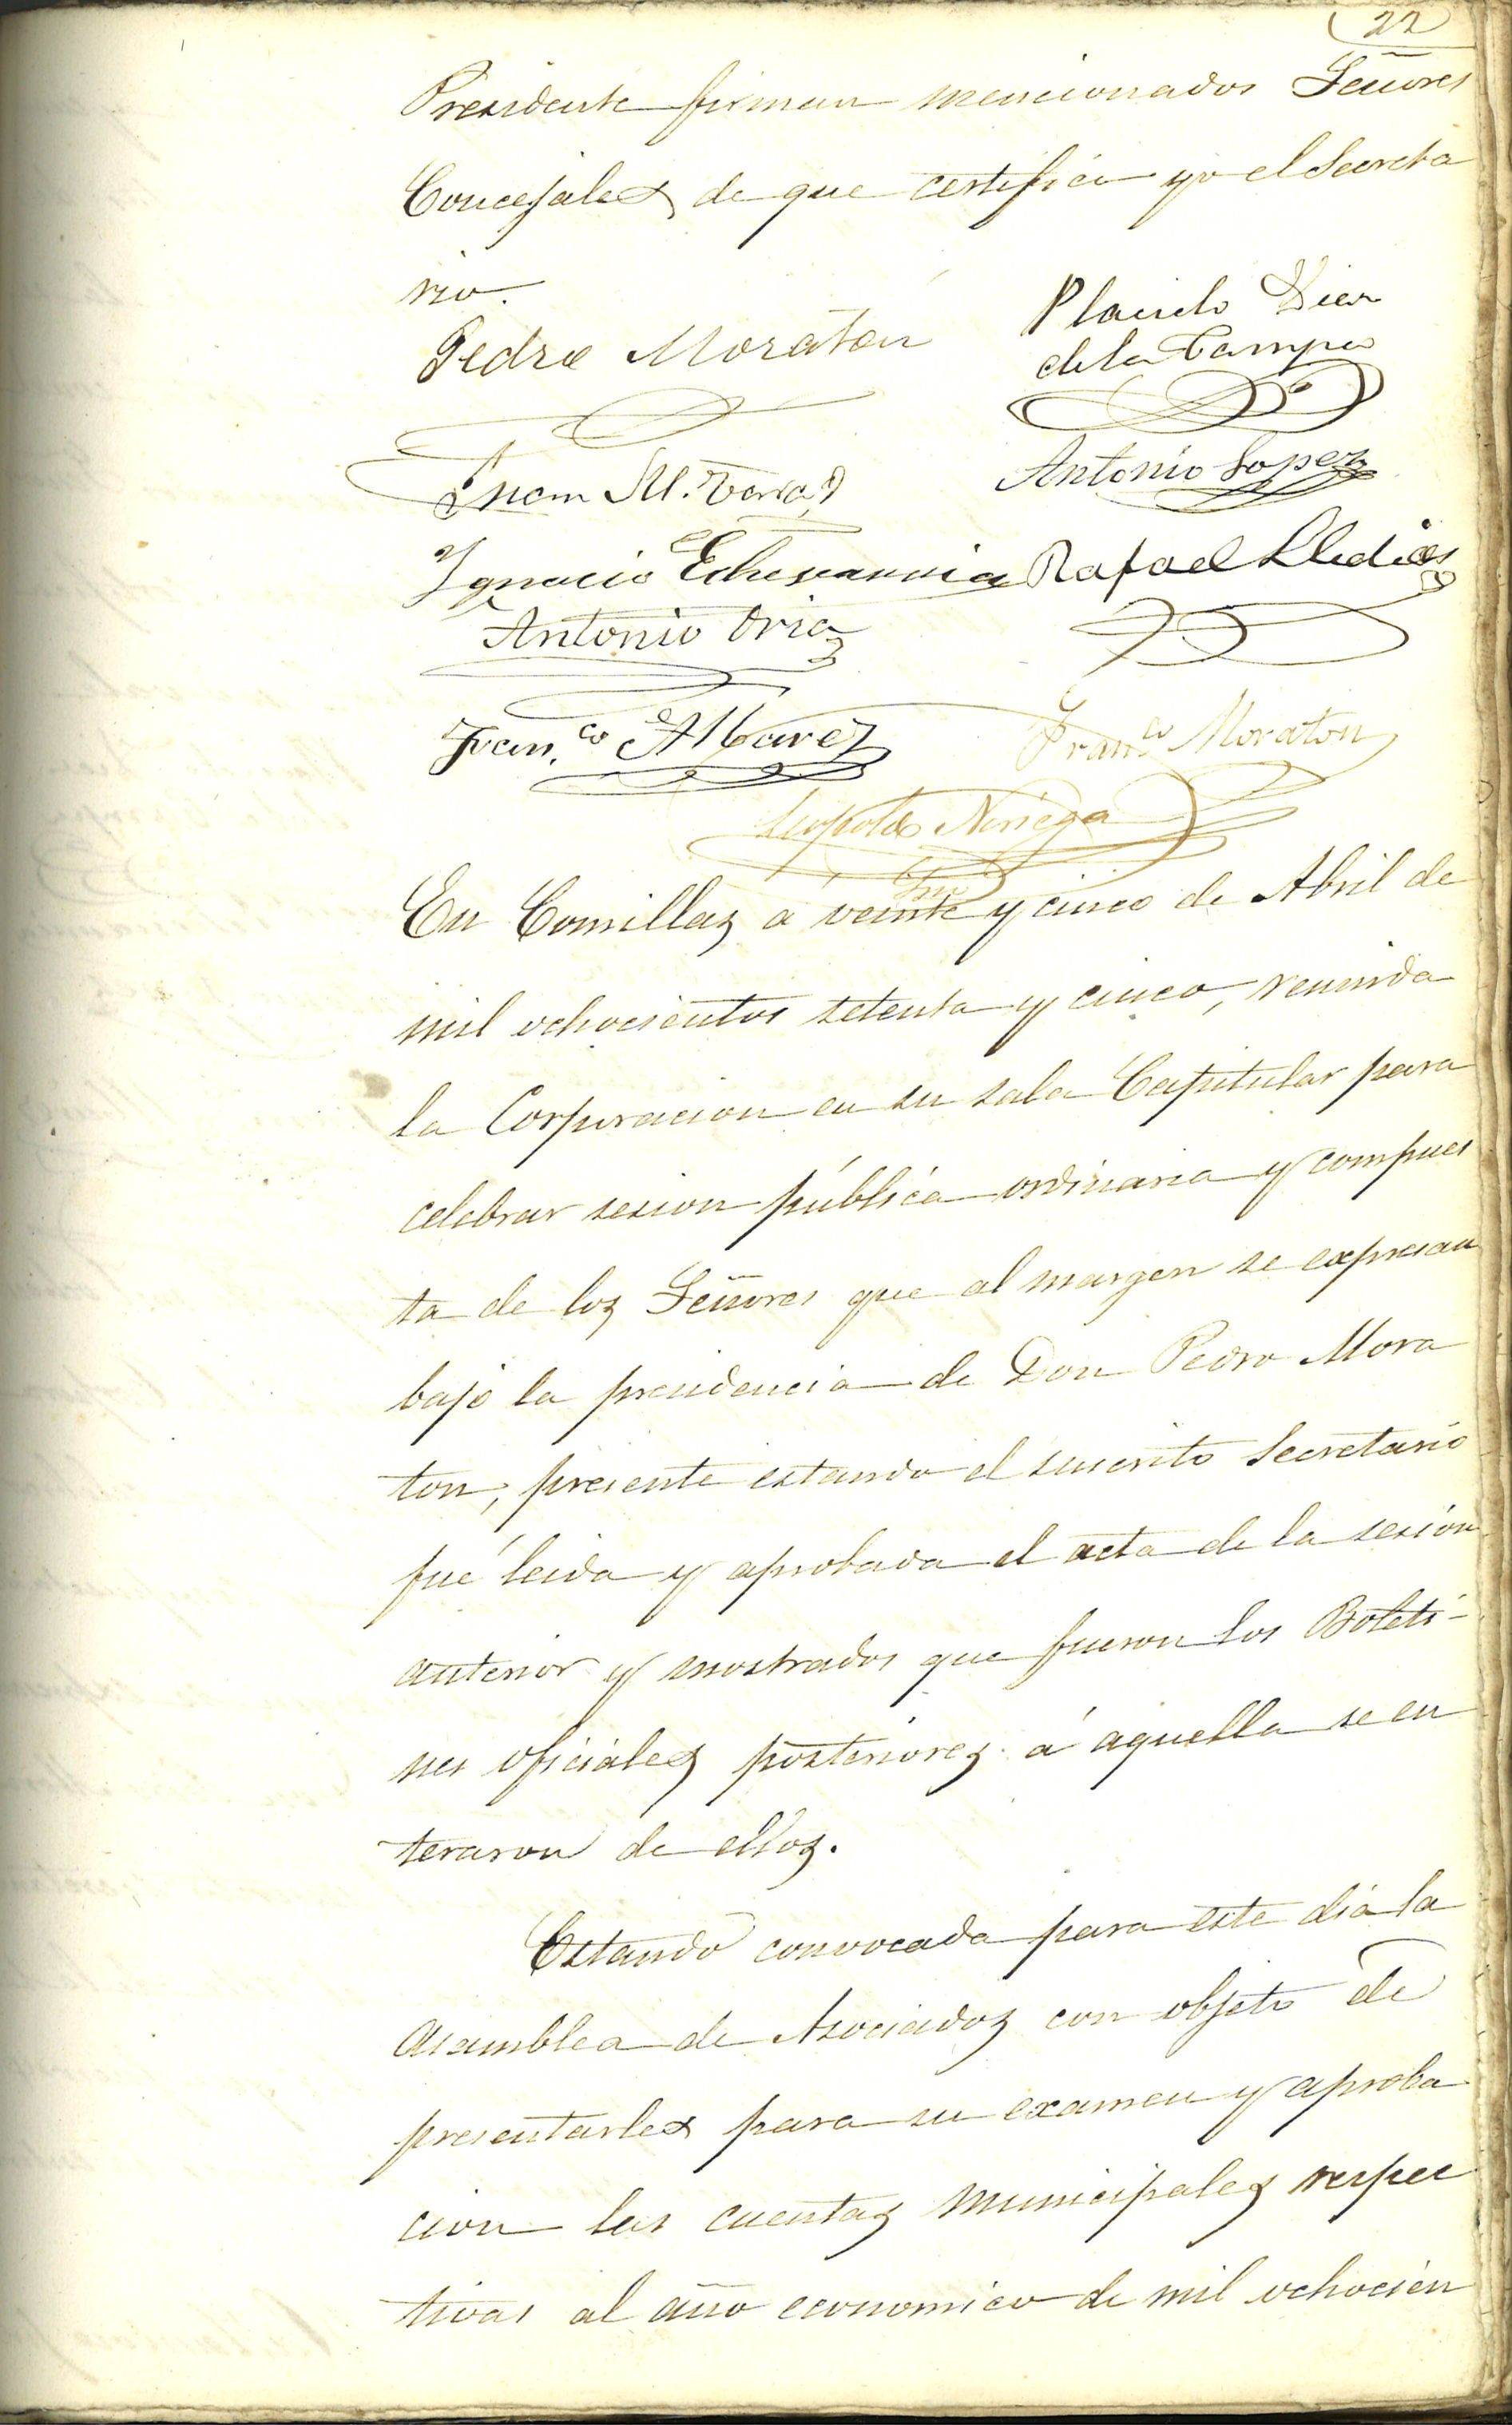 22
Presidente firman mencionados Señores
Concejales de que certifico yo el Secreta
rio.
Pedro Moraton
Placido Diez
de la Campa
Juan M. Teran
Antonio Lopez
Ygnacio Echevarria
Rafael Lledias
Antonio Oria
Fran.co Alvarez
Fran.co Moraton
Leopoldo Noriega
Srio
En Comillas á veinte y cinco de Abril de
mil ochocientos setenta y cinco, reunida
la Corporacion en su sala Capitular para
celebrar sesion pública ordinaria y compues
ta de los Señores que al margen se expresan
bajo la presidencia de Don Pedro Mora
ton, presente estando el suscrito Secretario
fué leida y aprobada el acta de la sesión
anterior y mostrados que fueron los Boleti-
nes oficiales posteriores á aquella se en
teraron de ellos.
Estando convocada para este dia la
asamblea de Asociados con objeto de
presentarles para su examen y aproba
cion las cuentas municipales respec
tivas al año economico de mil ochocien